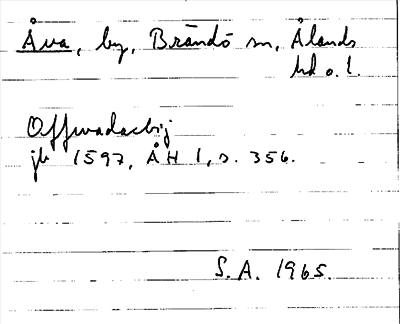 Åva, by, Brändö sn, Ålands
hd o. l.
Offwadaebij
jb 1597, ÅH 1, s. 356.
S. A. 1965.